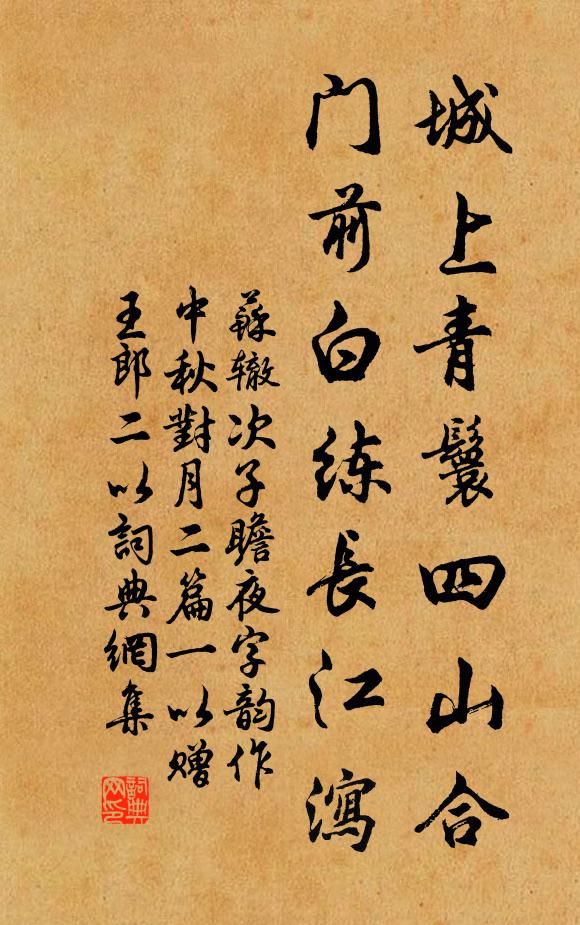 城上青鬟四山合
门前白练長江瀉
蘇辙次子瞻夜字韵作
中秋對月二篇一以赠
王郎二以詞典網集
詞典网印